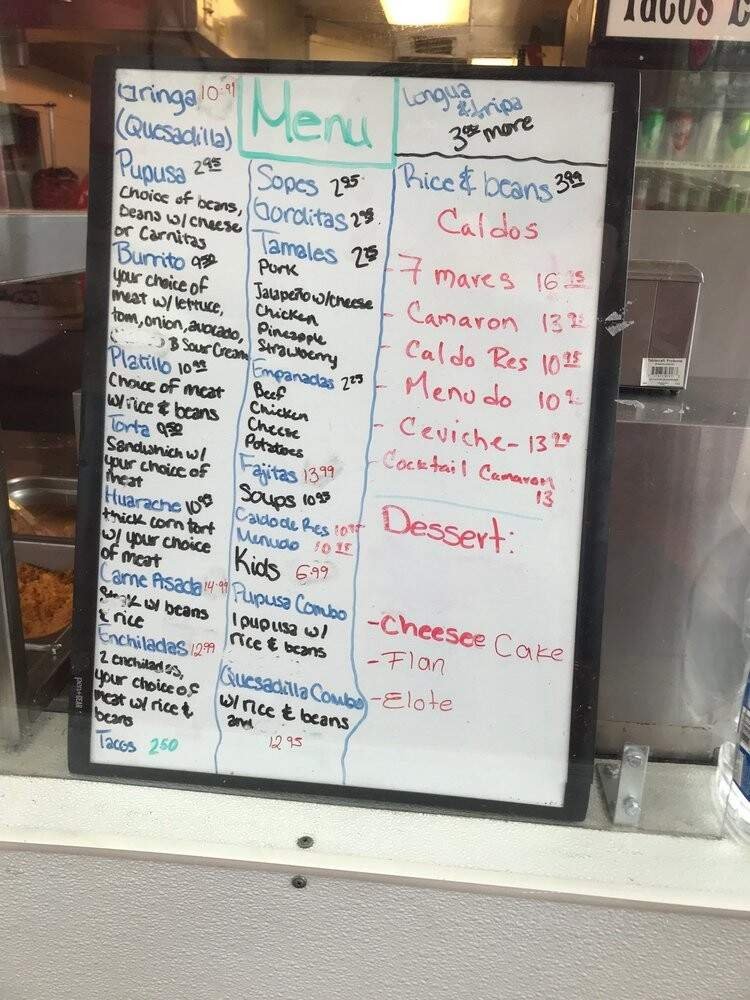 Tacos
Gringa 10.99
(Quesadilla)
Pupusa 2.95
Choice of beans,
beans w/ cheese
or Carnitas
Burrito 9.50
your choice of
meat w/ lettuce,
tom, onion, avocado,
& Sour Cream
Platillo
Choice of meat
w/ rice & beans
Torta 9.50
Sandwhich w/
your choice of
meat
Huarache
thick corn tort
w/ your choice
of meat
Carne Asada 14.99
w/ beans
& rice
Enchiladas 12.99
2 enchiladas,
your choice of
meat w/ rice &
beans
Tacos 2.50
Menu
Sopes 2.95
Gorditas 2.95
Tamales
Pork
Jalapeño w/cheese
Chicken
Pineapple
Strawberry
Empanadas
Beef
Chicken
Cheese
Potatoes
Fajitas 13.99
Soups 10.95
Caldo de Res
Menudo
Kids 6.99
Pupusa Combo
1 pupusa w/
rice & beans
Quesadilla Combo
w/ rice & beans
and
12.95
Longua
& tripa
more
Rice & beans 3.99
Caldos
- 7 mares
- Camaron
- Caldo Res 10.95
- Menudo
- Ceviche-
- Cocktail Camaron
13
Dessert:
-Cheesee Cake
-Flan
-Elote